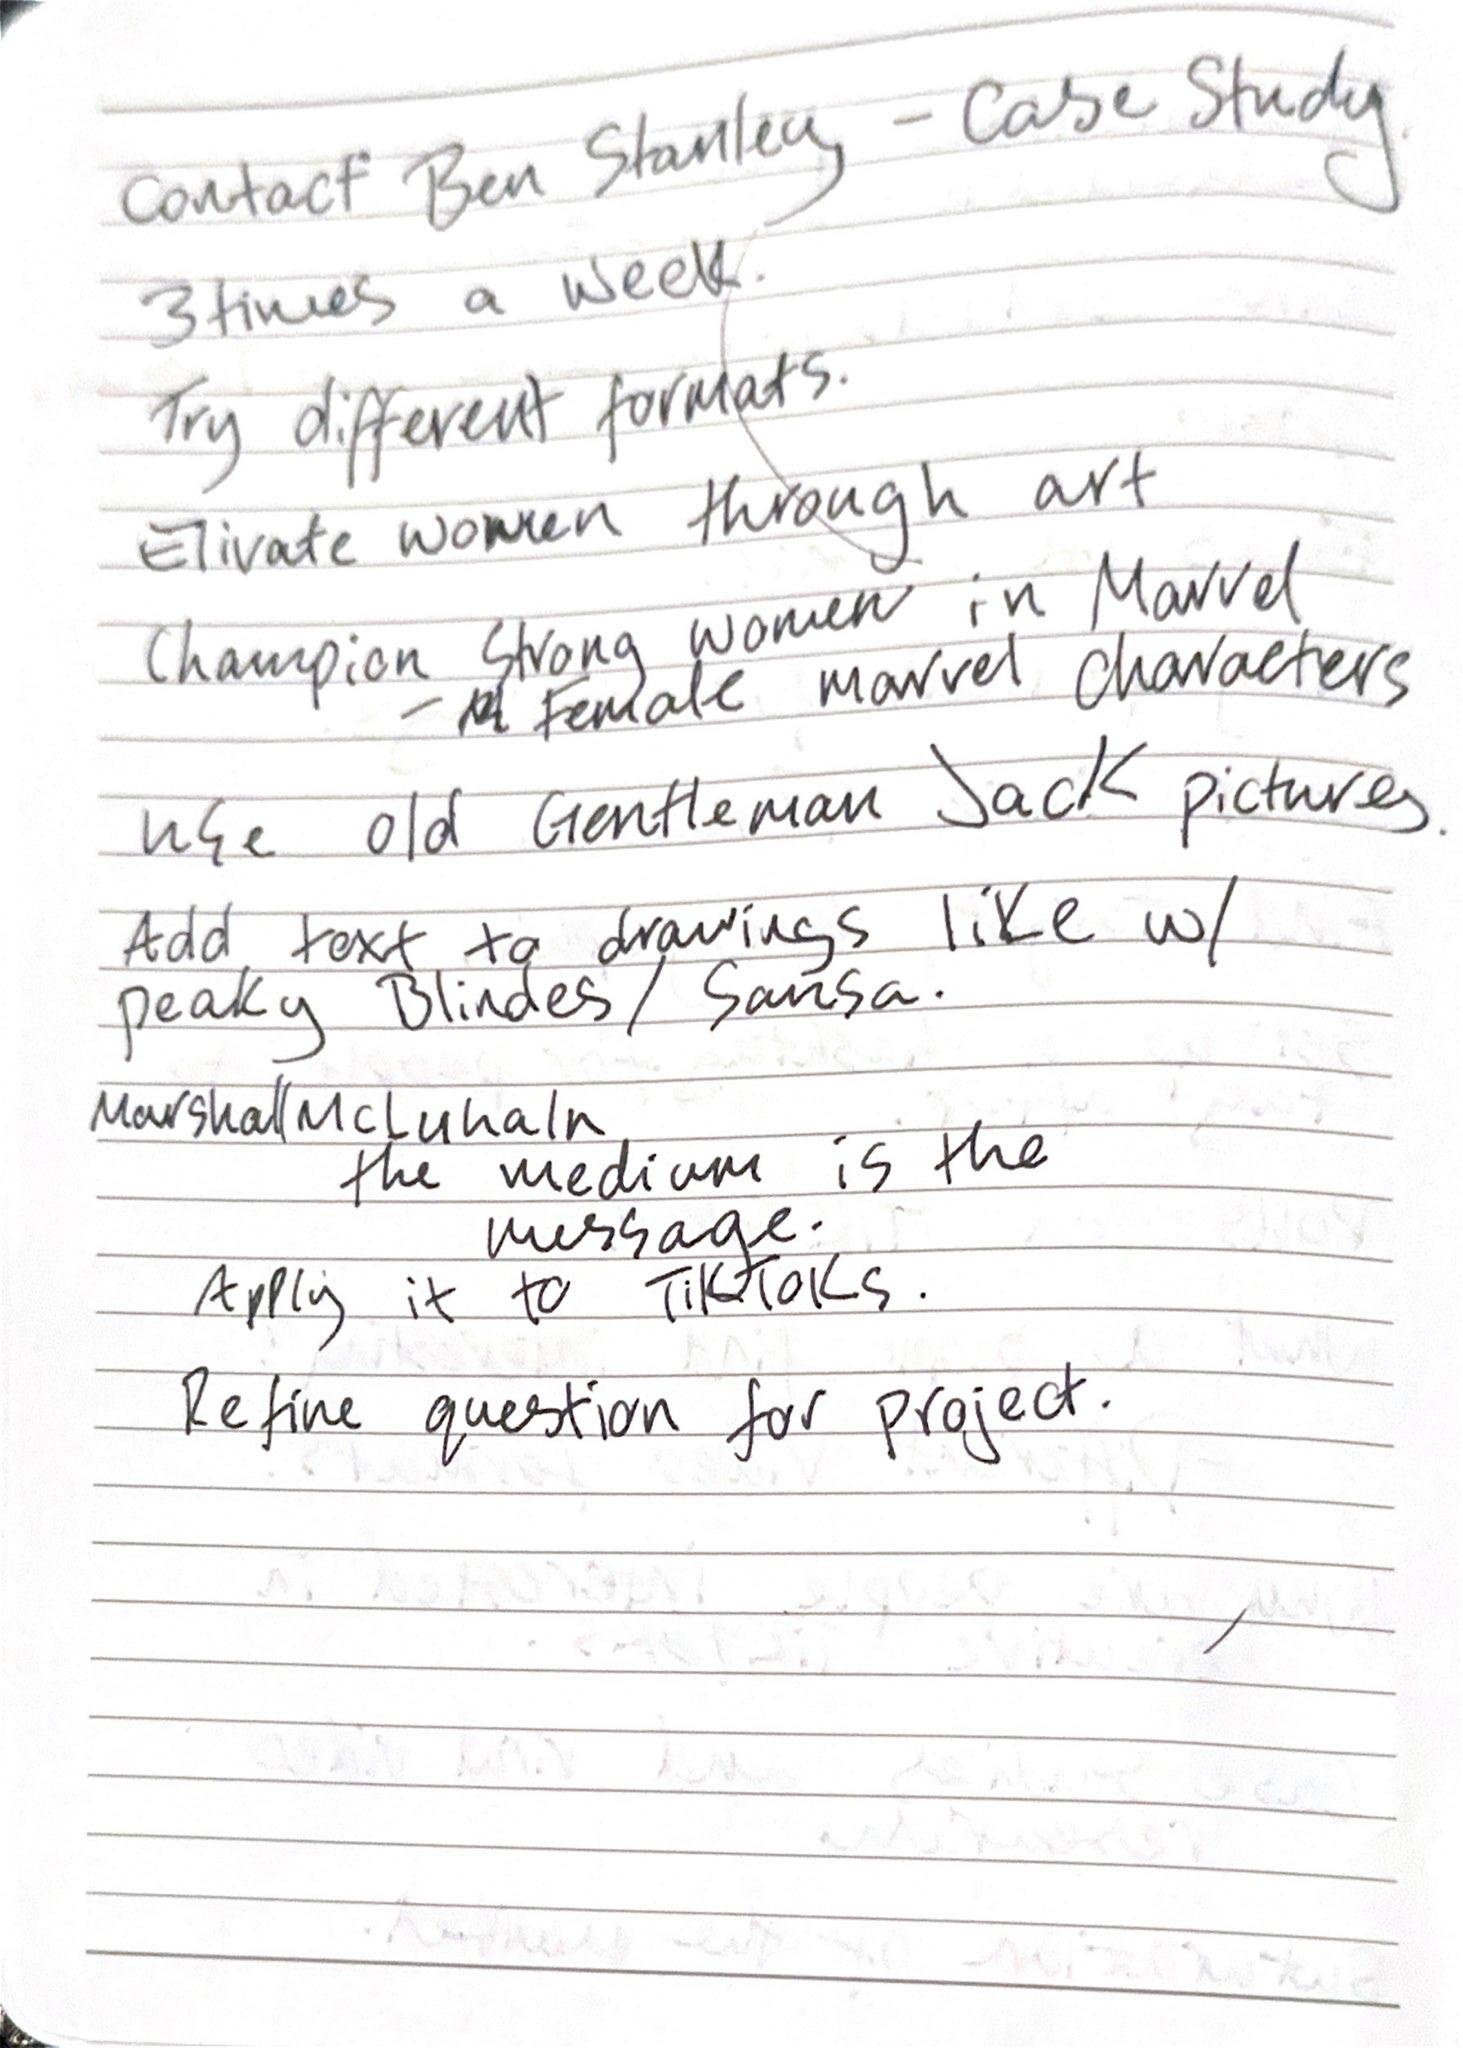 Contact Ben Stanley - Case Study.
3 times a week.
Try different formats.
Elivate women through art
Champion strong women in Marvel
- Female marvel characters
use old Gentleman Jack pictures.
Add text to drawings like w/
peaky Blindes/ Sansa.
Marshall McLuhaln
the medium is the
message.
Apply it to TikToks.
Refine question for project.